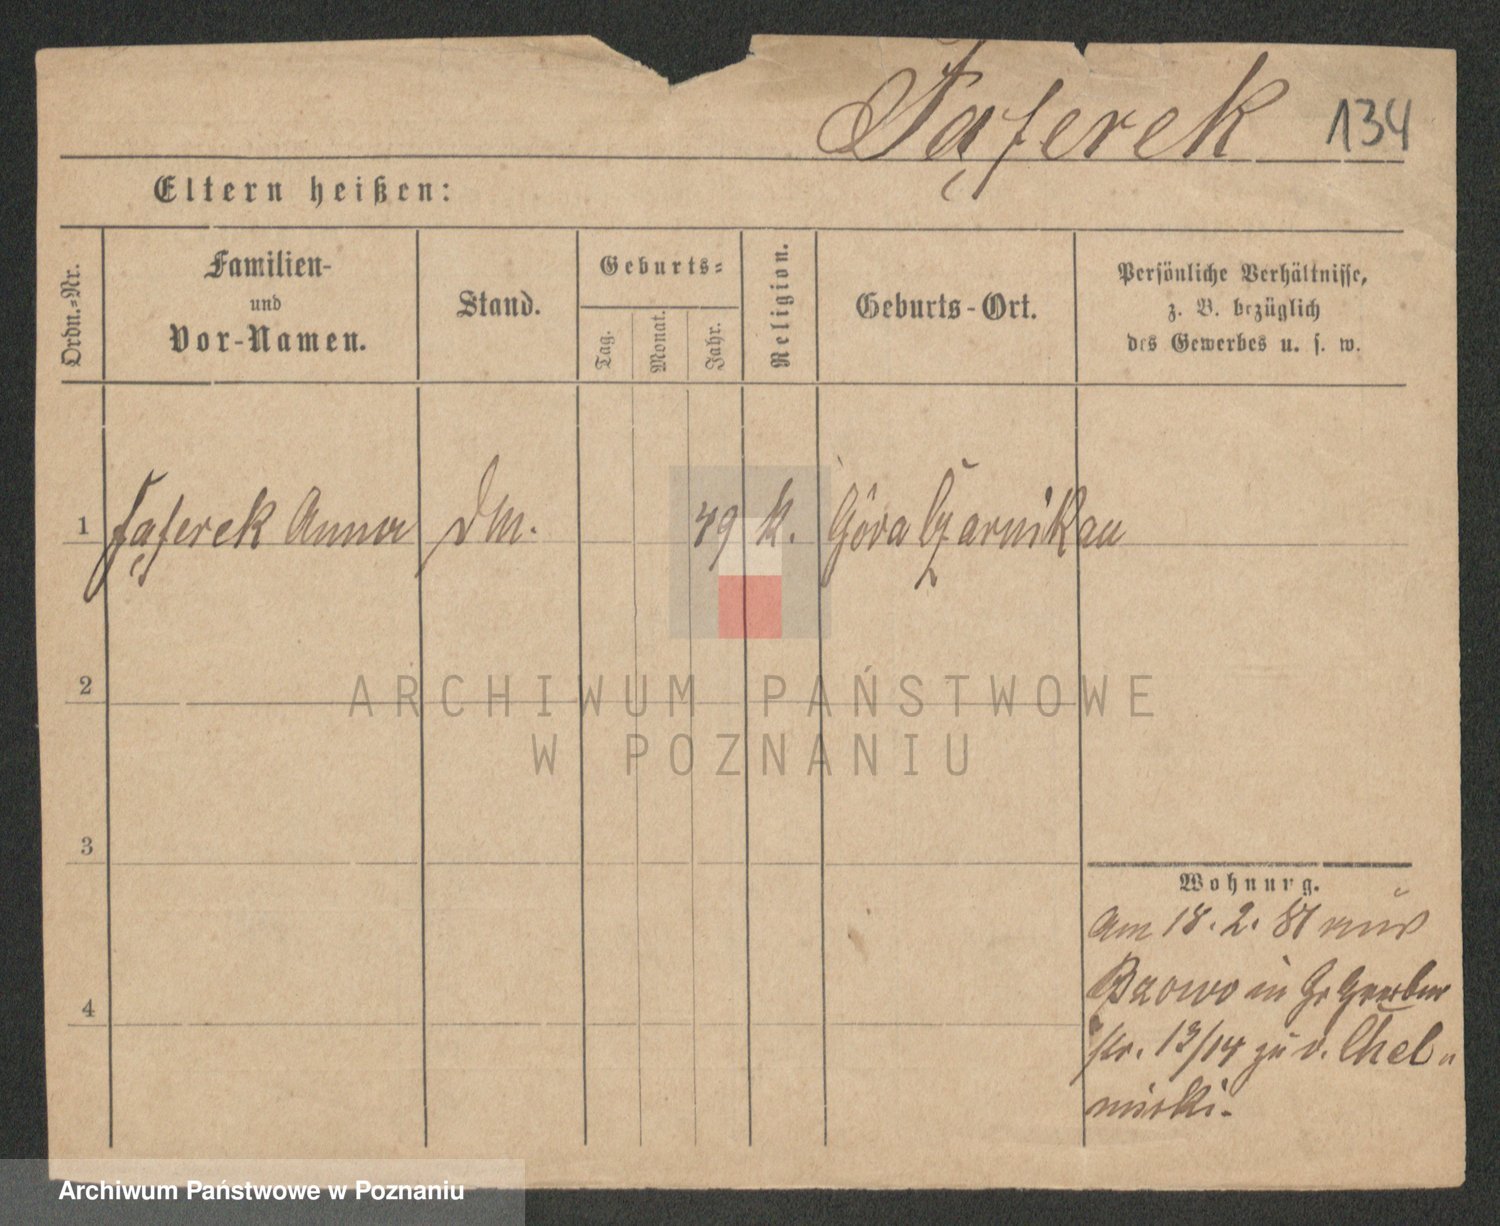 Fąferek 134
Eltern heißen:
Ordn.-Nr.
Familien-
und
Vor-Namen.
Stand.
Geburts-
Tag.
Monat.
Jahr.
Religion.
Geburts-Ort.
Persönliche Verhältnisse,
z. B. bezüglich
des Gewerbes u. s. w.
1 Fąferek Anna Dm. 49 k. Góra Czarnikau
2
3
4
Wohnung.
am 18. 2. 81 aus
in Gr Gerber
str. 13/14 zu v. Chel-
micki.
ARCHIWUM PAŃSTWOWE
W POZNANIU
Archiwum Państwowe w Poznaniu